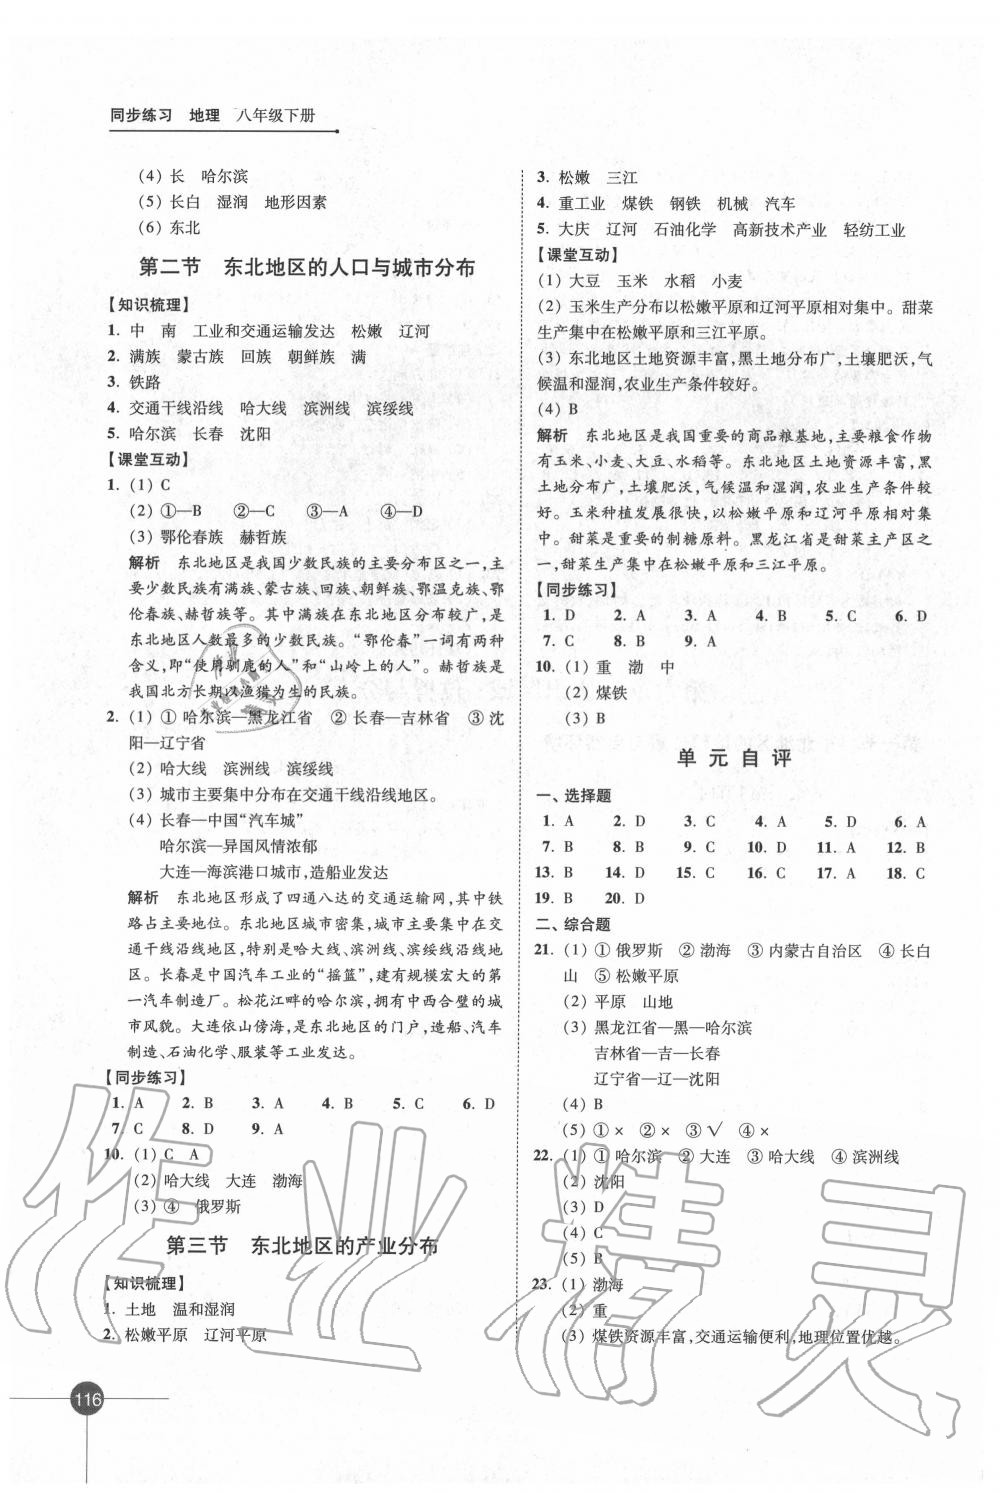 同步练习 地理 八年级下册
(4) 长 哈尔滨
(5) 长白 湿润 地形因素
(6) 东北
第二节 东北地区的人口与城市分布
【知识梳理】
1. 中 南 工业和交通运输发达 松嫩 辽河
2. 满族 蒙古族 回族 朝鲜族 满
3. 铁路
4. 交通干线沿线 哈大线 滨洲线 滨绥线
5. 哈尔滨 长春 沈阳
【课堂互动】
1. (1) C
(2) ①—B ②—C ③—A ④—D
(3) 鄂伦春族 赫哲族
解析 东北地区是我国少数民族的主要分布区之一,主
要少数民族有满族、蒙古族、回族、朝鲜族、鄂温克族、鄂
伦春族、赫哲族等。其中满族在东北地区分布较广,是
东北地区人数最多的少数民族。“鄂伦春”一词有两种
含义,即“使用驯鹿的人”和“山岭上的人”。赫哲族是
我国北方长期以渔猎为生的民族。
2. (1) ① 哈尔滨—黑龙江省 ② 长春—吉林省 ③ 沈
阳—辽宁省
(2) 哈大线 滨洲线 滨绥线
(3) 城市主要集中分布在交通干线沿线地区。
(4) 长春—中国“汽车城”
哈尔滨—异国风情浓郁
大连—海滨港口城市,造船业发达
解析 东北地区形成了四通八达的交通运输网,其中铁
路占主要地位。东北地区城市密集,城市主要集中在交
通干线沿线地区,特别是哈大线、滨洲线、滨绥线沿线地
区。长春是中国汽车工业的“摇篮”,建有规模宏大的第
一汽车制造厂。松花江畔的哈尔滨,拥有中西合璧的城
市风貌。大连依山傍海,是东北地区的门户,造船、汽车
制造、石油化学、服装等工业发达。
【同步练习】
1. A 2. B 3. A 4. B 5. C 6. D
7. C 8. D 9. A
10. (1) C A
(2) 哈大线 大连 渤海
(3) ④ 俄罗斯
第三节 东北地区的产业分布
【知识梳理】
1. 土地 温和湿润
2. 松嫩平原 辽河平原
3. 松嫩 三江
4. 重工业 煤铁 钢铁 机械 汽车
5. 大庆 辽河 石油化学 高新技术产业 轻纺工业
【课堂互动】
(1) 大豆 玉米 水稻 小麦
(2) 玉米生产分布以松嫩平原和辽河平原相对集中。甜菜
生产集中在松嫩平原和三江平原。
(3) 东北地区土地资源丰富,黑土地分布广,土壤肥沃,气
候温和湿润,农业生产条件较好。
(4) B
解析 东北地区是我国重要的商品粮基地,主要粮食作物
有玉米、小麦、大豆、水稻等。东北地区土地资源丰富,黑
土地分布广,土壤肥沃,气候温和湿润,农业生产条件较
好。玉米种植发展很快,以松嫩平原和辽河平原相对集
中。甜菜是重要的制糖原料。黑龙江省是甜菜主产区之
一,甜菜生产集中在松嫩平原和三江平原。
【同步练习】
1. D 2. A 3. A 4. B 5. C 6. D
7. C 8. B 9. A
10. (1) 重 渤 中
(2) 煤铁
(3) B
单元自评
一、选择题
1. A 2. D 3. C 4. A 5. D 6. A
7. B 8. B 9. C 10. D 11. A 12. B
13. B 14. D 15. C 16. C 17. A 18. C
19. B 20. D
二、综合题
21. (1) ① 俄罗斯 ② 渤海 ③ 内蒙古自治区 ④ 长白
山 ⑤ 松嫩平原
(2) 平原 山地
(3) 黑龙江省—黑—哈尔滨
吉林省—吉—长春
辽宁省—辽—沈阳
(4) B
(5) ① × ② × ③ √ ④ ×
22. (1) ① 哈尔滨 ② 大连 ③ 哈大线 ④ 滨洲线
(2) 沈阳
(3) D
(4) C
(5) B
23. (1) 渤海
(2) 重
(3) 煤铁资源丰富,交通运输便利,地理位置优越。
116
作业精灵